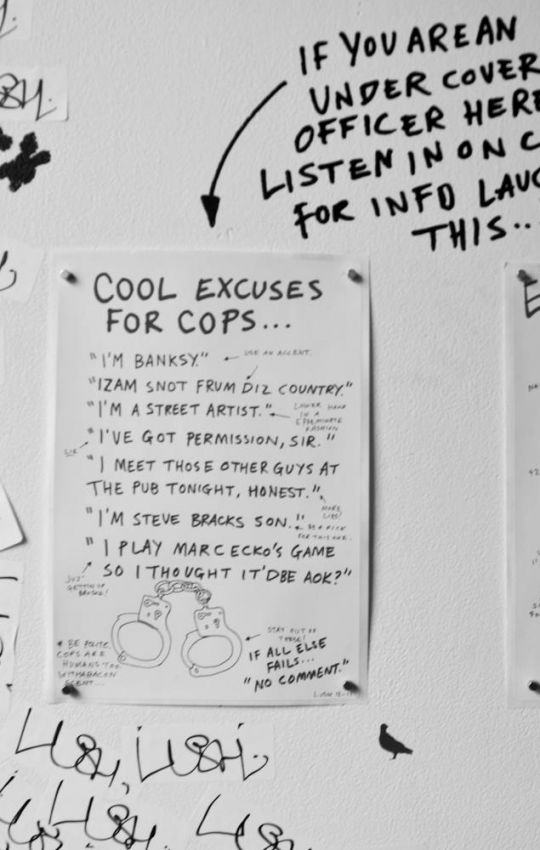 IF YOU ARE AN
UNDER COVER
OFFICER HERE
LISTEN IN ON
FOR INFO
THIS..
COOL EXCUSES
FOR COPS...
"I'M BANKSY."
USE AN ACCENT.
"IZAM SNOT FRUM DIZ COUNTRY."
"I'M A STREET ARTIST."
LOWER HAND
IN A
EFFEMINATE
FASHION
"I'VE GOT PERMISSION, SIR."
SIR
"I MEET THOSE OTHER GUYS AT
THE PUB TONIGHT, HONEST."
MORE
LIES!
"I'M STEVE BRACKS SON."
FOR THIS ONE.
"I PLAY MARC ECKO'S GAME
SO I THOUGHT IT'D BE AOK?"
STAY OUT OF
THESE!
IF ALL ELSE
FAILS...
"NO COMMENT."
* BE POLITE.
COPS ARE
HUMANS TOO
WITH A BACON
SCENT...